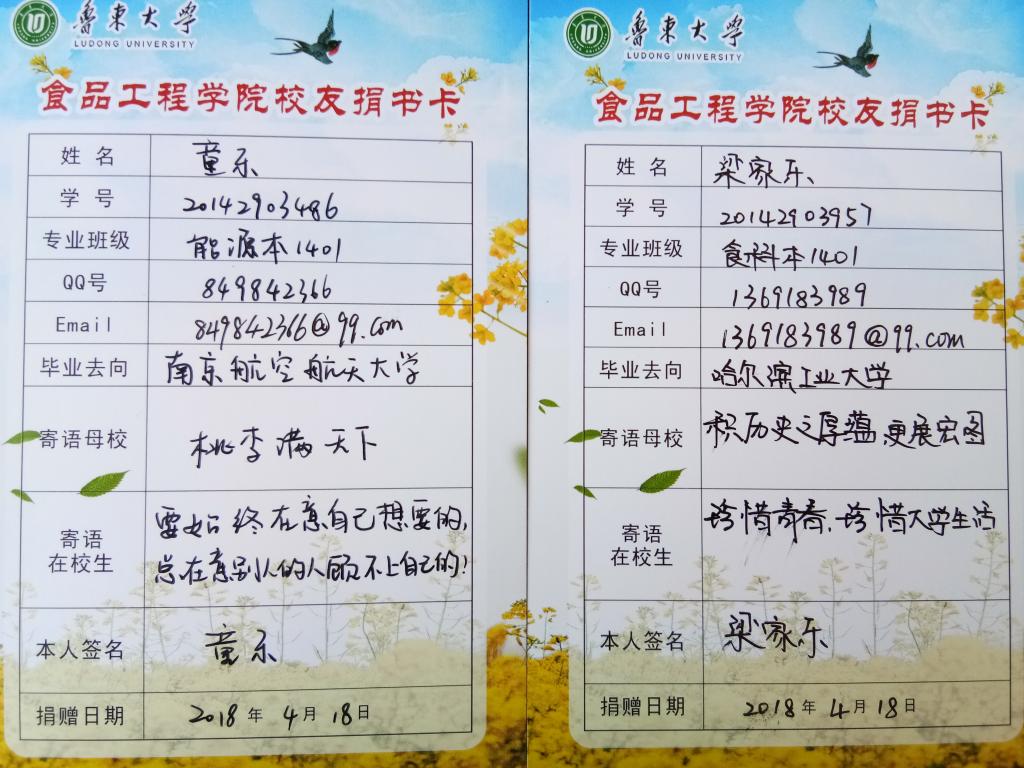 魯東大学
LUDONG UNIVERSITY
食品工程学院校友捐书卡
姓 名 童乐
学 号 20142903486
专业班级 能源本1401
QQ号 849842366
Email 849842366@qq.com
毕业去向 南京航空航天大学
寄语母校 桃李满天下
寄语
在校生
要始终在意自己想要的,
总在意别人的人顾不上自己的!
本人签名 童乐
捐赠日期 2018 年 4 月 18 日
魯東大学
LUDONG UNIVERSITY
食品工程学院校友捐书卡
姓 名 梁家乐
学 号 20142903957
专业班级 食科本1401
QQ号 1369183989
Email 1369183989@qq.com
毕业去向 哈尔滨工业大学
寄语母校 积历史之厚蕴,更展宏图
寄语
在校生
珍惜青春,珍惜大学生活
本人签名 梁家乐
捐赠日期 2018 年 4 月 18 日